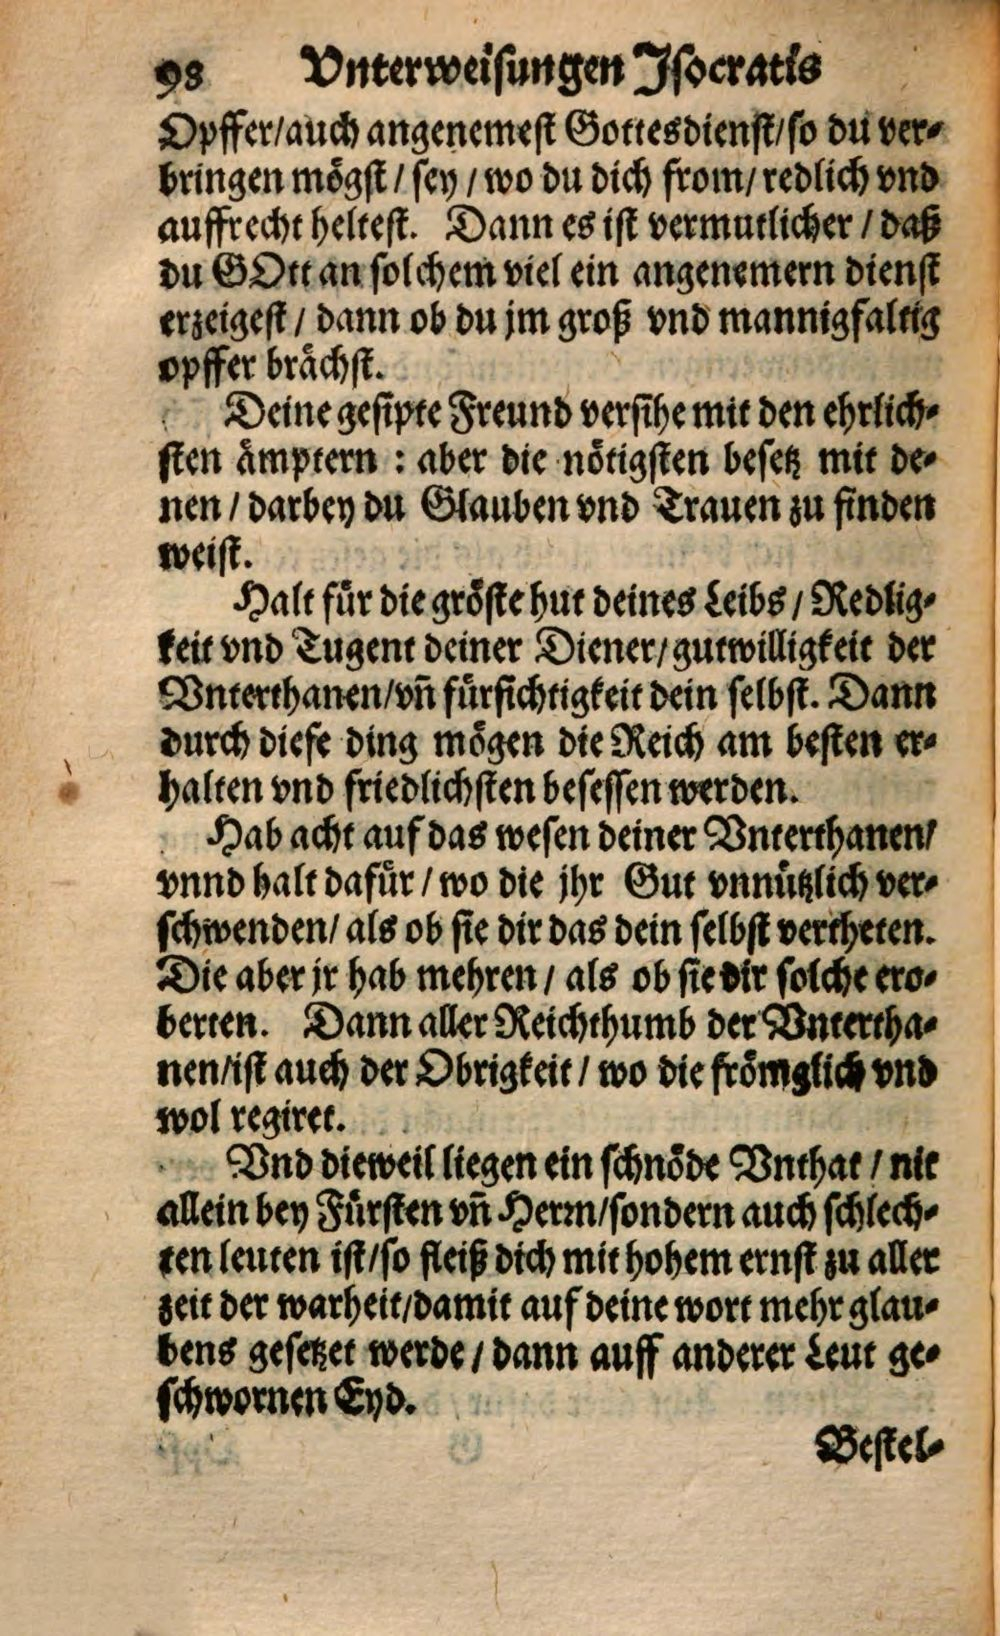 98 Vnterweisungen Isocratis
Opffer/auch angenemest Gottesdienst/so du ver-
bringen mögst / sey / wo du dich from/ redlich vnd
auffrecht heltest. Dann es ist vermutlicher / daß
du GOtt an solchem viel ein angenemern dienst
erzeigest / dann ob du jm groß vnd mannigfaltig
opffer brächst.
Deine gesipte Freund versihe mit den ehrlich-
sten ämptern : aber die nötigsten besetz mit de-
nen / darbey du Glauben vnd Trauen zu finden
weist.
Halt für die gröste hut deines Leibs / Redlig-
keit vnd Tugent deiner Diener/ gutwilligkeit der
Vnterthanen/vñ fürsichtigkeit dein selbst. Dann
durch diese ding mögen die Reich am besten er-
halten vnd friedlichsten besessen werden.
Hab acht auf das wesen deiner Vnterthanen/
vnnd halt dafür / wo die jhr Gut vnnützlich ver-
schwenden/ als ob sie dir das dein selbst vertheten.
Die aber jr hab mehren / als ob sie dir solche ero-
berten. Dann aller Reichthumb der Vntertha-
nen/ist auch der Obrigkeit / wo die frömglich vnd
wol regiret.
Vnd dieweil liegen ein schnöde Vnthat / nit
allein bey Fürsten vñ Herrn/sondern auch schlech-
ten leuten ist/so fleiß dich mit hohem ernst zu aller
zeit der warheit/damit auf deine wort mehr glau-
bens gesetzet werde / dann auff anderer Leut ge-
schwornen Eyd.
Bestel-